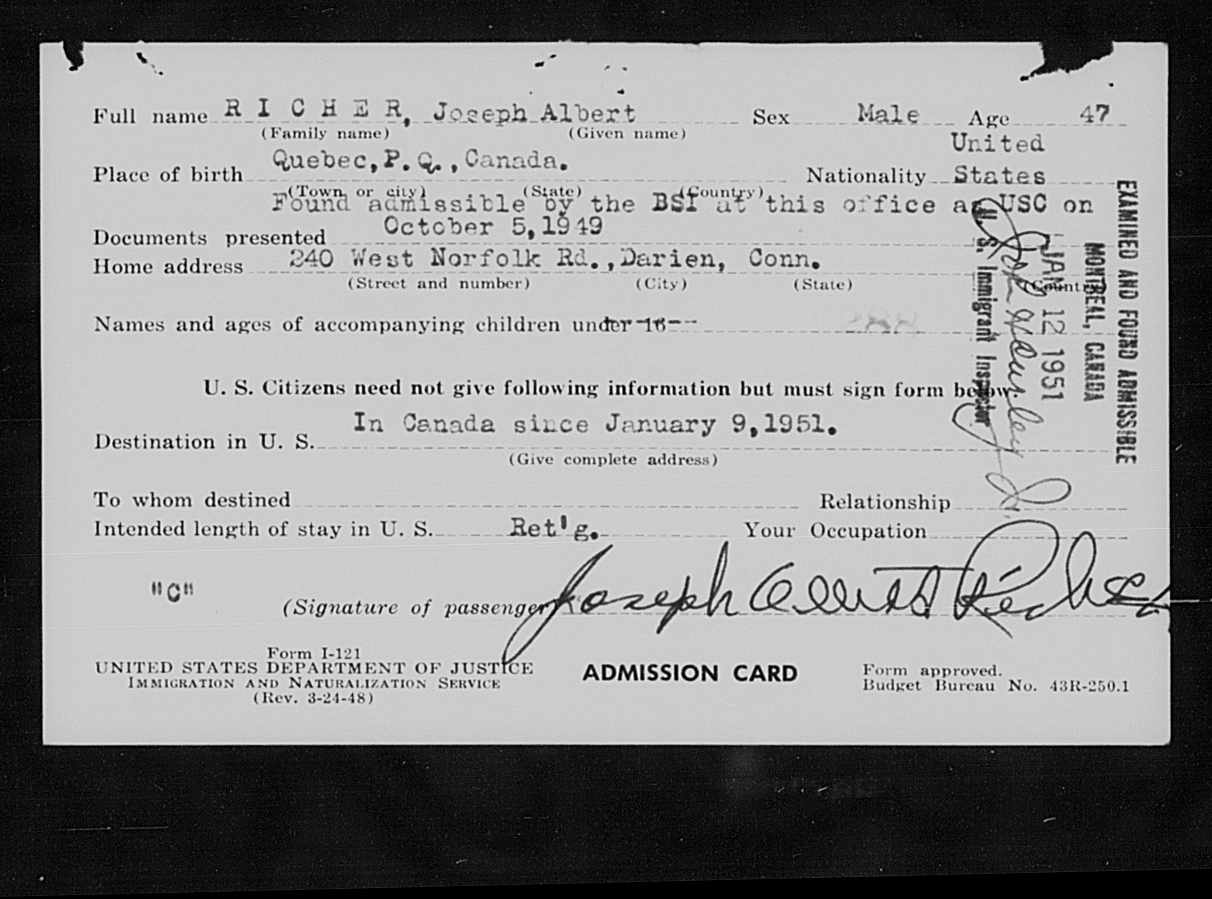 Full name R I C H E R, Joseph Albert Sex Male Age 47
(Family name) (Given name)
United
Place of birth Quebec, P. Q., Canada. Nationality States
(Town or city) (State) (Country)
Found admissible by the BSI at this office as USC on
Documents presented October 5, 1949
Home address 240 West Norfolk Rd., Darien, Conn.
(Street and number) (City) (State) (Country)
Names and ages of accompanying children under 16--
U. S. Citizens need not give following information but must sign form below.
Destination in U. S. In Canada since January 9, 1951.
(Give complete address)
To whom destined Relationship
Intended length of stay in U. S. Ret'g. Your Occupation
"C"
(Signature of passenger) Joseph Albert Richer
Form I-121
UNITED STATES DEPARTMENT OF JUSTICE
IMMIGRATION AND NATURALIZATION SERVICE
(Rev. 3-24-48)
ADMISSION CARD
Form approved.
Budget Bureau No. 43R-250.1
EXAMINED AND FOUND ADMISSIBLE
MONTREAL, CANADA
JAN 12 1951
U. S. Immigrant Inspector